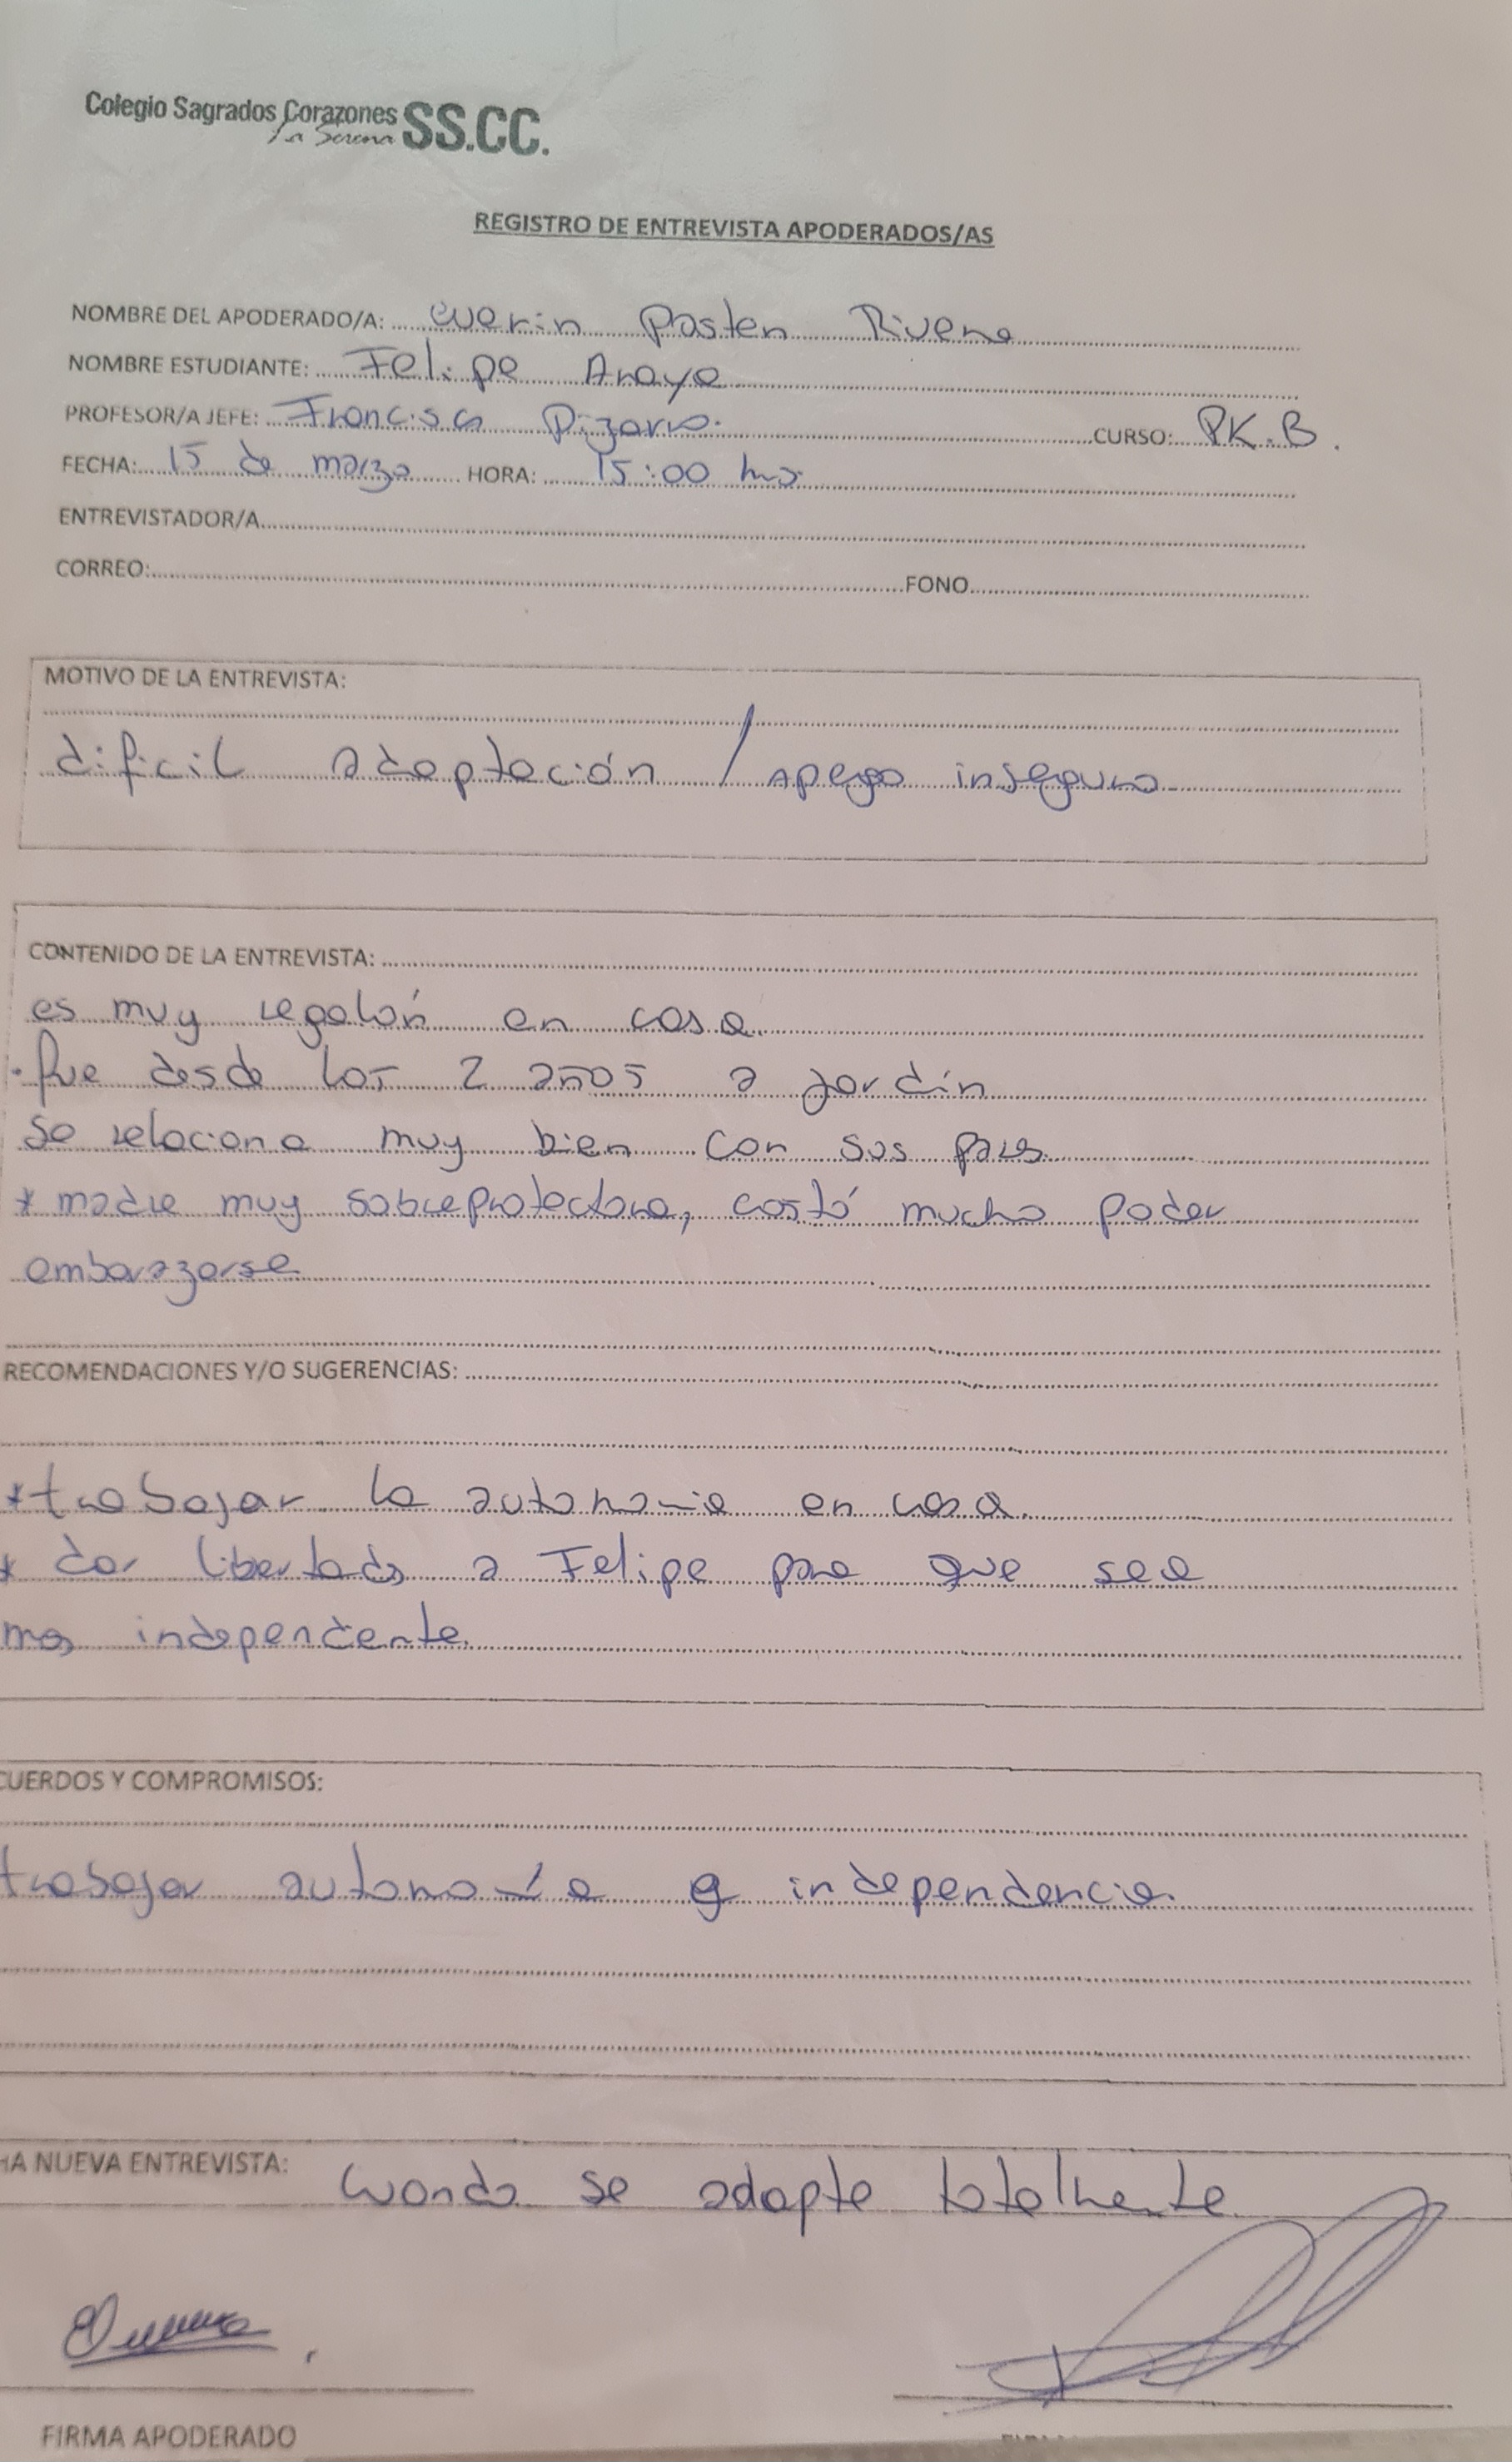 Colegio Sagrados Corazones SS.CC.
La Serena
REGISTRO DE ENTREVISTA APODERADOS/AS
NOMBRE DEL APODERADO/A: Evelin Pasten Rivera
NOMBRE ESTUDIANTE: Felipe Araya
PROFESOR/A JEFE: Francisca Pizarro. CURSO: PK.B.
FECHA: 15 de marzo HORA: 15:00 hrs
ENTREVISTADOR/A
CORREO: FONO
MOTIVO DE LA ENTREVISTA:
dificil adaptación / apego inseguro
CONTENIDO DE LA ENTREVISTA:
es muy regalón en casa.
· fue desde los 2 años a jardín
se relaciona muy bien con sus pares
* madre muy sobreprotectora, costó mucho poder
embarazarse
RECOMENDACIONES Y/O SUGERENCIAS:
* trabajar la autonomía en casa.
* dar libertades a Felipe para que sea
mas independiente.
CUERDOS Y COMPROMISOS:
trabajar autonomía e independencia.
HA NUEVA ENTREVISTA: cuando se adapte totalmente.
FIRMA APODERADO